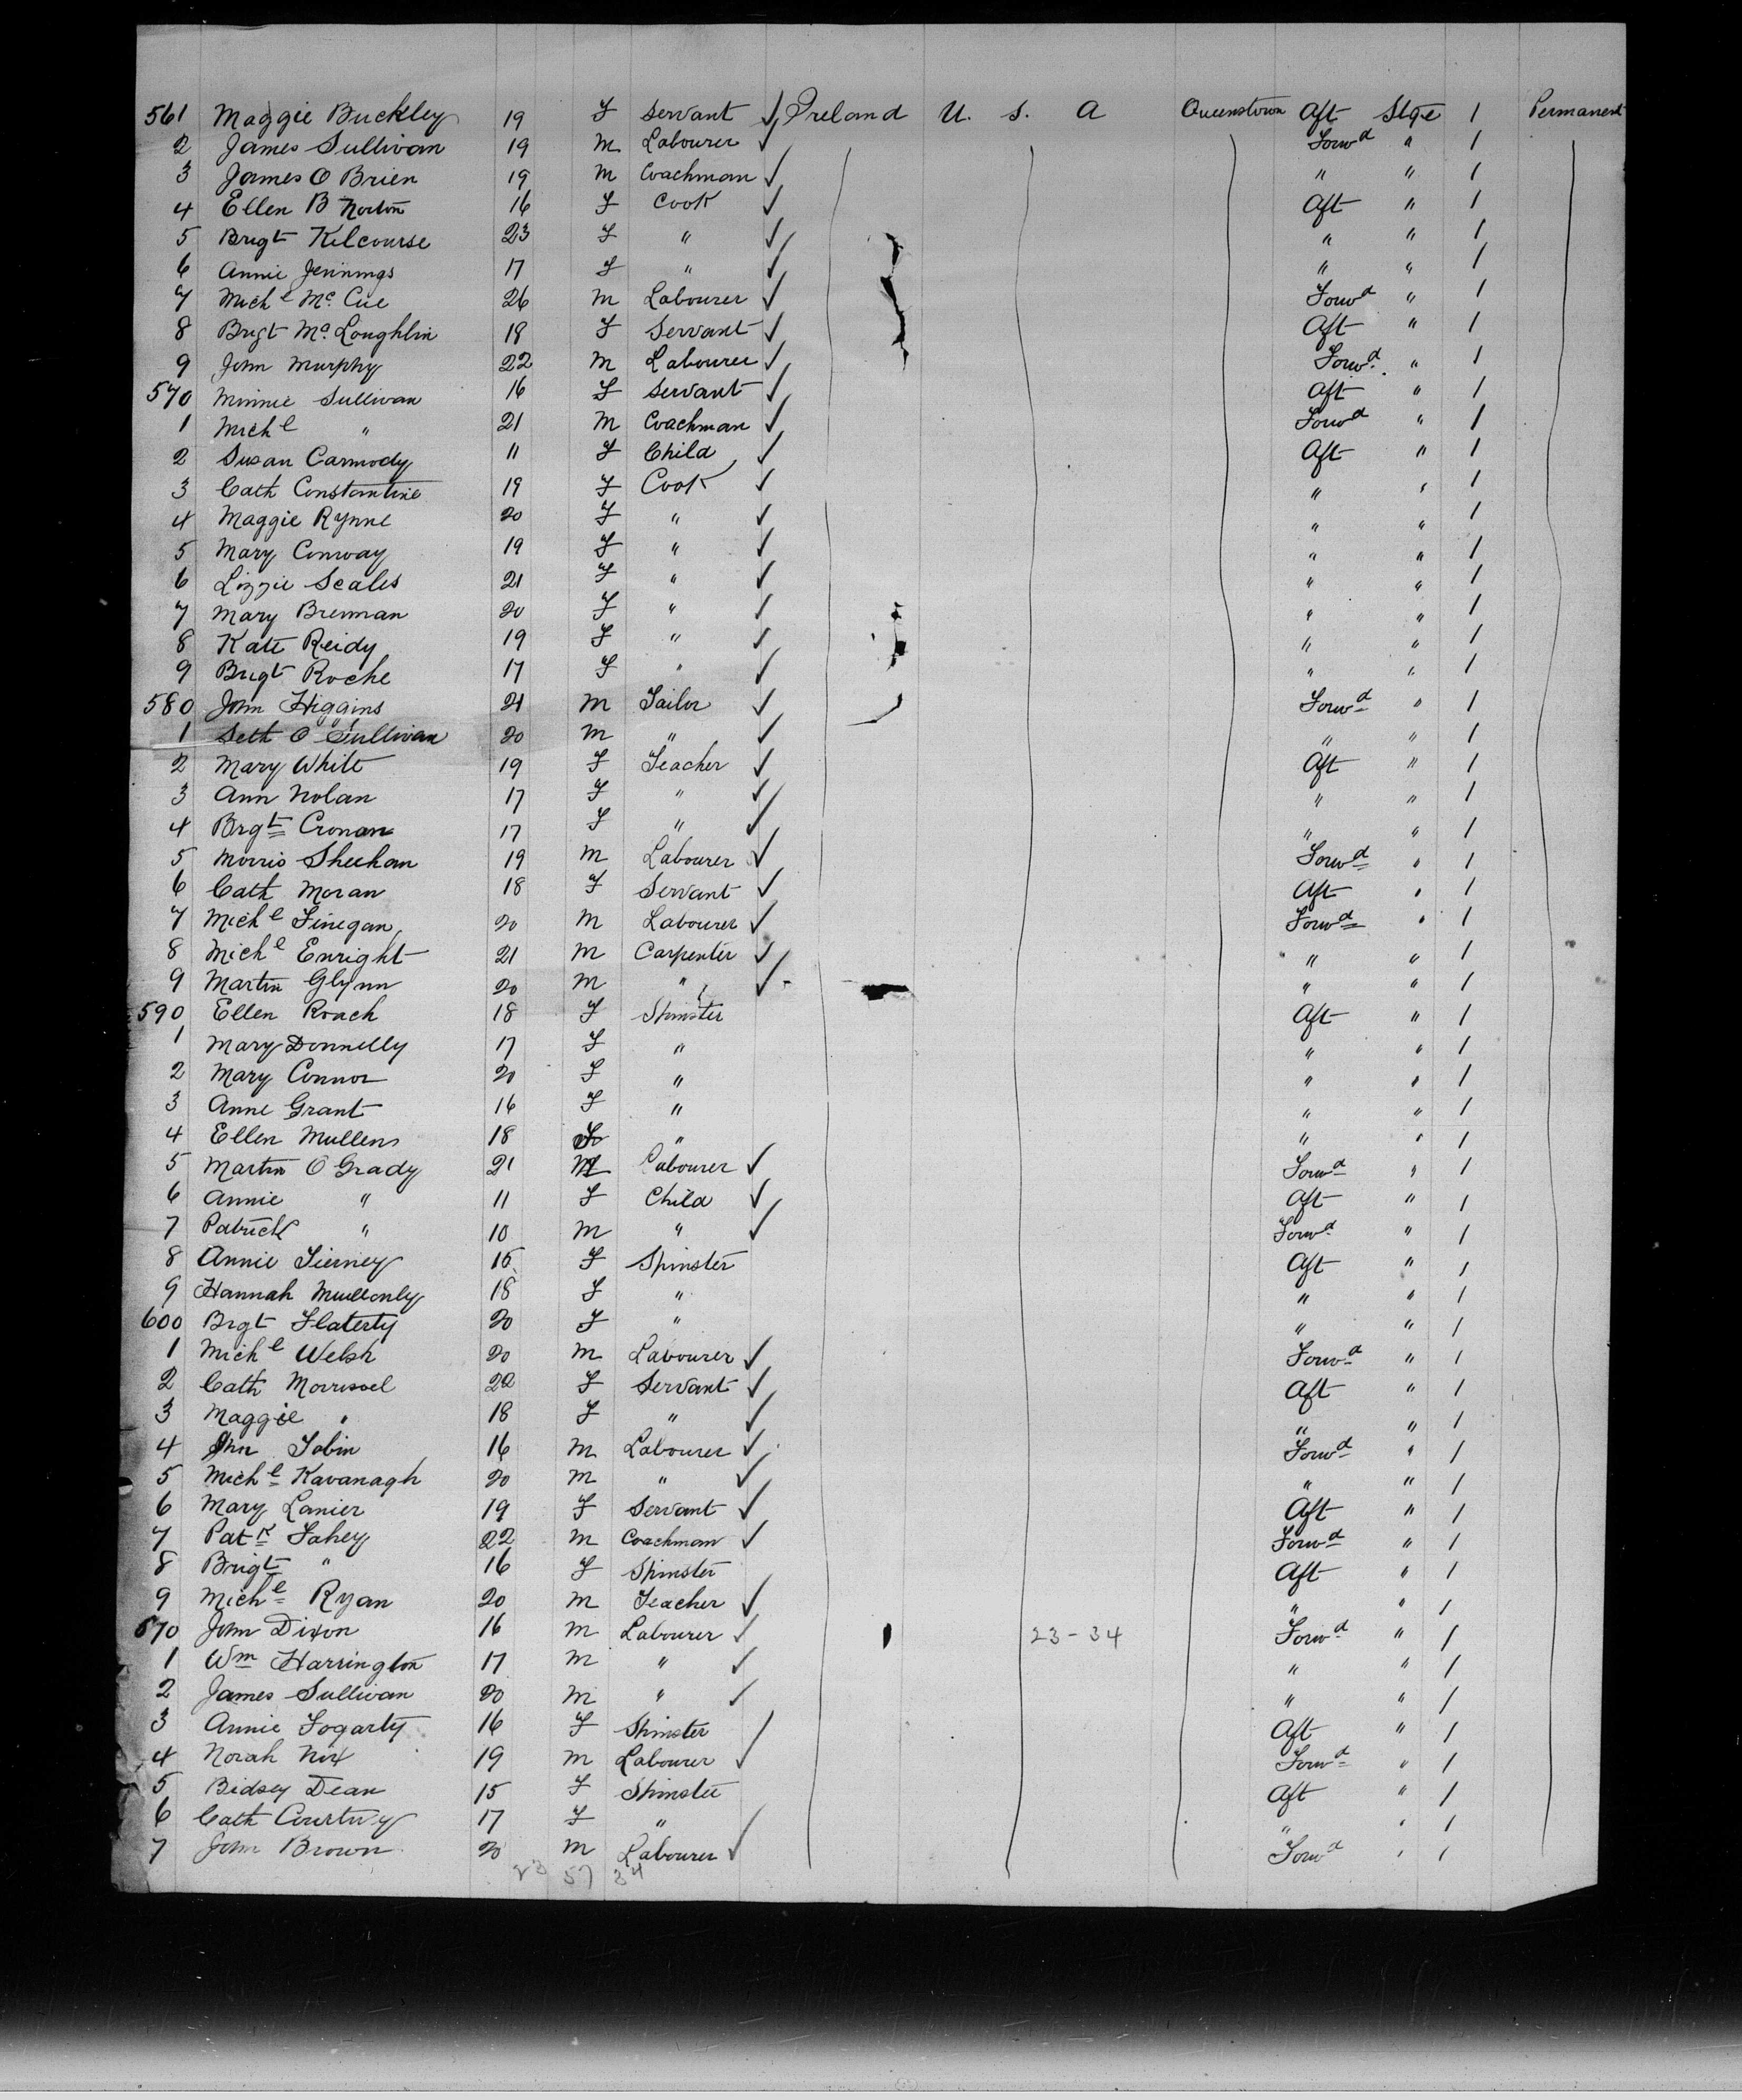 561 Maggie Buckley 19 F Servant ✓ Ireland U. S. A Queenstown Aft Stge 1 Permanent
2 James Sullivan 19 M Labourer ✓ Forwd " 1
3 James O Brien 19 M Coachman ✓ " " 1
4 Ellen B Norton 16 F Cook ✓ Aft " 1
5 Brigt Kilcourse 23 F " ✓ " " 1
6 Annie Jennings 17 F " ✓ " " 1
7 Michl Mc Cue 26 M Labourer ✓ Forwd " 1
8 Brigt Mc Loughlin 18 F Servant ✓ Aft " 1
9 John Murphy 22 M Labourer ✓ Forwd " 1
570 Minnie Sullivan 16 F Servant ✓ Aft " 1
1 Michl " 21 M Coachman ✓ Forwd " 1
2 Susan Carmody 11 F Child ✓ Aft " 1
3 Cath Constantine 19 F Cook ✓ " " 1
4 Maggie Rynne 20 F " ✓ " " 1
5 Mary Conway 19 F " ✓ " " 1
6 Lizzie Scales 21 F " ✓ " " 1
7 Mary Brennan 20 F " ✓ " " 1
8 Kate Reidy 19 F " ✓ " " 1
9 Brigt Roche 17 F " ✓ " " 1
580 John Higgins 21 M Tailor ✓ Forwd " 1
1 Seth O Sullivan 20 M " ✓ " " 1
2 Mary White 19 F Teacher ✓ Aft " 1
3 Ann Nolan 17 F " ✓ " " 1
4 Brgt Cronan 17 F " ✓ " " 1
5 Morris Sheehan 19 M Labourer ✓ Forwd " 1
6 Cath Moran 18 F Servant ✓ Aft " 1
7 Michl Finegan 20 M Labourer ✓ Forwd " 1
8 Michl Enright 21 M Carpenter ✓ " " 1
9 Martin Glynn 20 M " ✓ " " 1
590 Ellen Roach 18 F Spinster Aft " 1
1 Mary Donnelly 17 F " " " 1
2 Mary Connor 20 F " " " 1
3 Anne Grant 16 F " " " 1
4 Ellen Mullens 18 F " " " 1
5 Martin O Grady 21 M Labourer ✓ Forwd " 1
6 Annie " 11 F Child ✓ Aft " 1
7 Patrick " 10 M " ✓ Forwd " 1
8 Annie Tierney 15 F Spinster Aft " 1
9 Hannah Mullonly 18 F " " " 1
600 Brgt Flaterty 20 F " " " 1
1 Michl Welsh 20 M Labourer ✓ Forwd " 1
2 Cath Morrissel 22 F Servant ✓ Aft " 1
3 Maggie " 18 F " ✓ " " 1
4 Jhn Tobin 16 M Labourer ✓ Forwd " 1
5 Michl Kavanagh 20 M " ✓ " " 1
6 Mary Lanier 19 F Servant ✓ Aft " 1
7 Patk Fahey 22 M Coachman ✓ Forwd " 1
8 Brigt " 16 F Spinster Aft " 1
9 Michl Ryan 20 M Teacher ✓ " " 1
670 John Dixon 16 M Labourer ✓ 23-34 Forwd " 1
1 Wm Harrington 17 M " ✓ " " 1
2 James Sullivan 20 M " ✓ " " 1
3 Annie Fogarty 16 F Spinster / Aft " 1
4 Norah Nix 19 M Labourer ✓ Forwd " 1
5 Bidsey Dean 15 F Spinster Aft " 1
6 Cath Courtny 17 F " " " 1
7 John Brown 20 M Labourer ✓ Forwd " 1
23 57 34